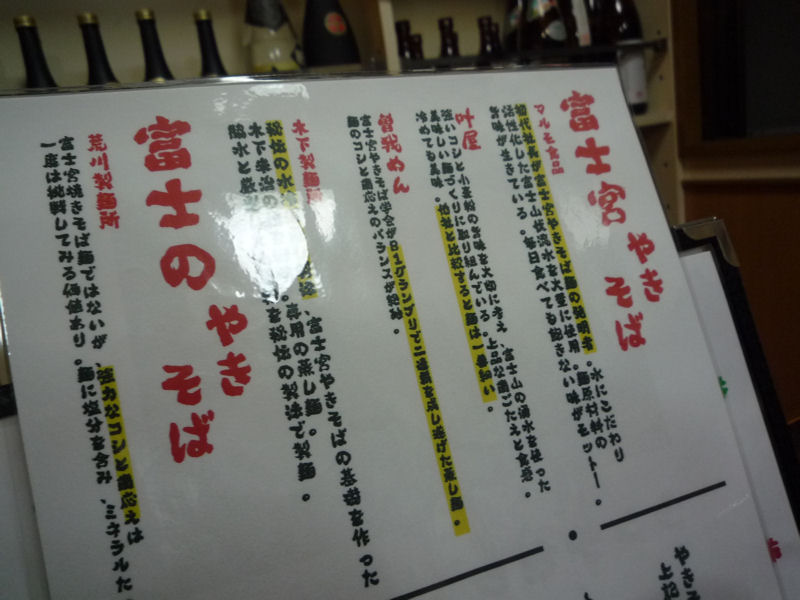 富士宮やきそば
マルモ食品
初代社長が富士宮やきそば麺の発明者。水にこだわり
活性化した富士山伏流水を大量に使用。麺原材料の
旨味が生きている。毎日食べても飽きない味がモットー。
叶屋
強いコシと小麦粉の旨味を大切に考え、富士山の湧水を使った
美味しい麺づくりに取り組んでいる。上品な歯ごたえと食感。
冷めても美味。他社と比較すると麺は一番細い。
曽我めん
富士宮やきそば学会がB1グランプリで二連覇を成し遂げた蒸し麺。
麺のコシと歯応えのバランスが絶妙。
木下製麺所
秘伝の水
、富士宮やきそばの基礎を作った
木下来治の
専用の蒸し麺。
脱水と
を秘伝の製法で製麺。
富士のやきそば
荒川製麺所
富士宮焼きそば麺ではないが、強力なコシと歯応えは
一度は挑戦してみる価値あり。麺に塩分を含み、ミネラルた
やきそ